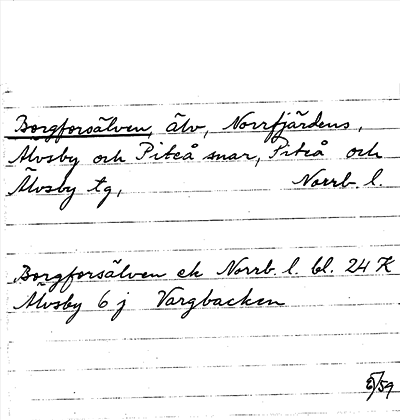 Borgforsälven, älv, Norrfjärdens,
Älvsby och Piteå snar, Piteå och
Älvsby tg, Norrb. l.
Borgforsälven ek Norrb. l. bl. 24 K
Älvsby 6 j Vargbacken
/59